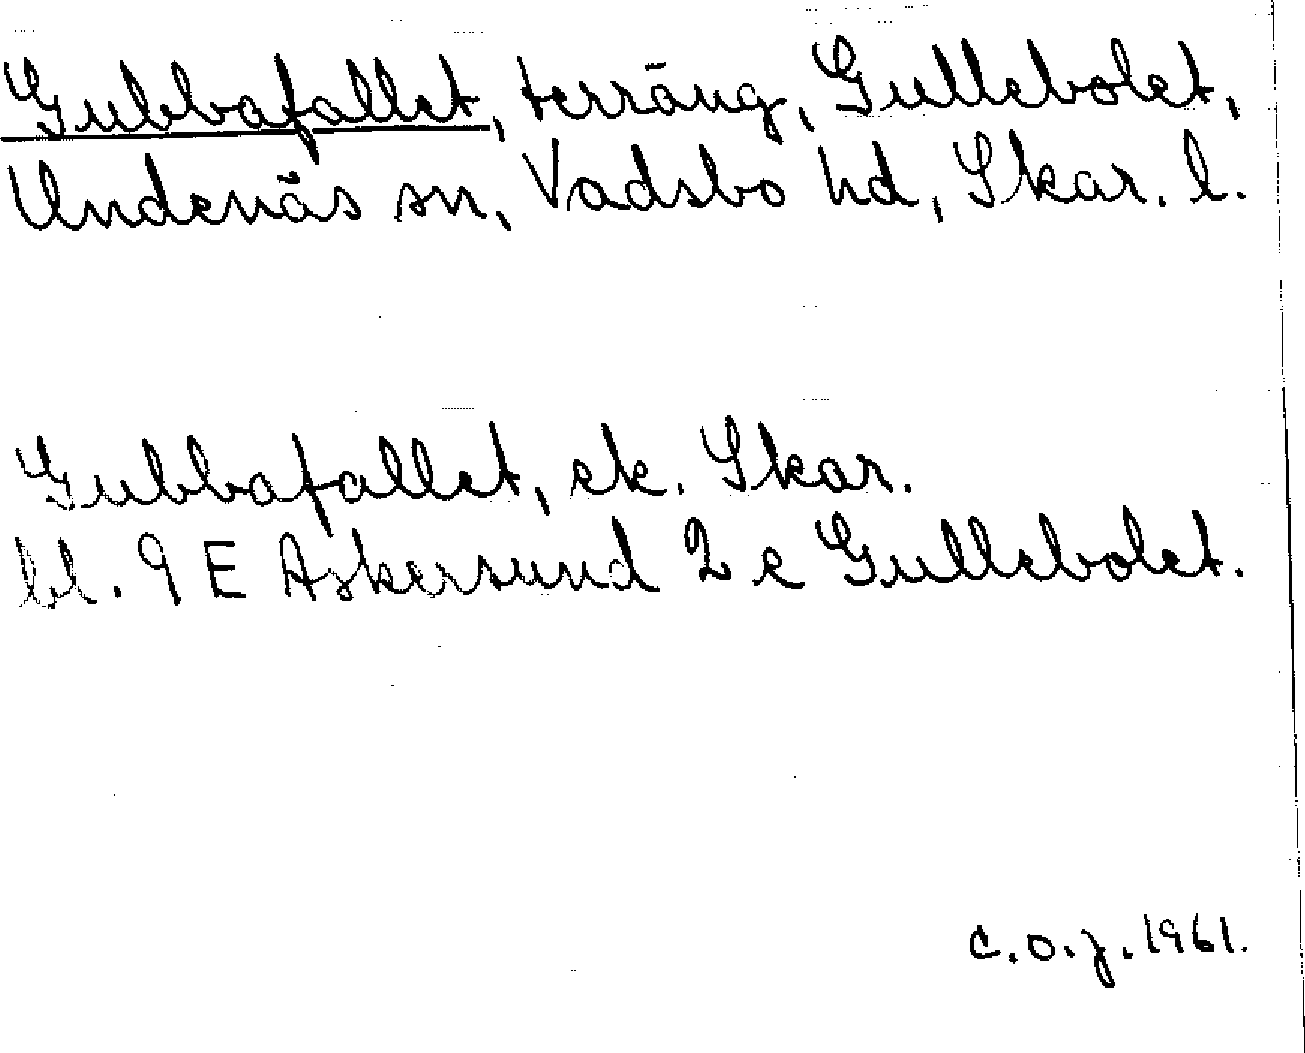 Gubbafallet, terräng, Gullebolet,
Undenäs sn, Vadsbo hd, Skar. l.
Gubbafallet, ek. Skar.
bl. 9 E Askersund 2 e Gullebolet.
C.O.J. 1961.